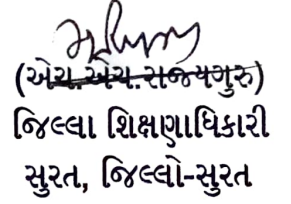 (એચ.એચ.રાજયગુરુ)
જિલ્લા શિક્ષણાધિકારી
સુરત, જિલ્લો-સુરત